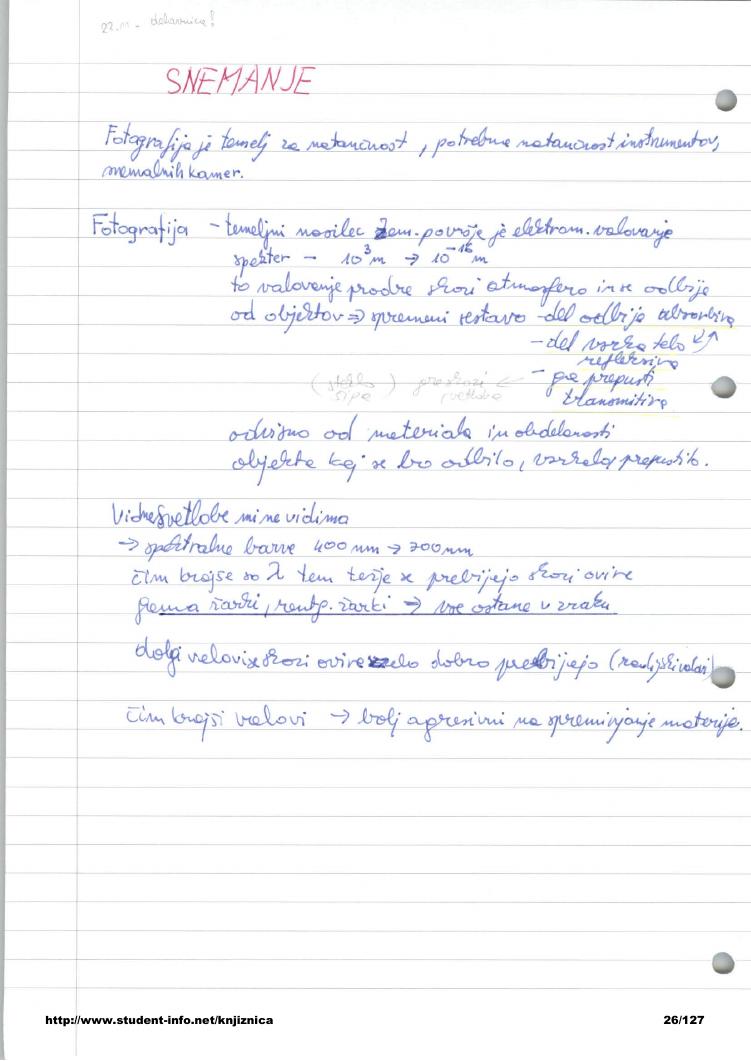 22.11 - delavnica!
SNEMANJE
Fotografija je temelj za natančnost, potrebna natančnost instrumentov,
snemalnih kamer.
Fotografija - temeljni nosilec zem. površje je elektrom. valovanje
spekter - 10³m → 10⁻¹⁶ m
to valovanje prodre skozi atmosfero in se odbije
od objektov ⇒ spremeni sestavo - del odbije absorbira
- del vsrka telo
refleksira
(steklo) preskozi ← - ga prepusti
sipa svetloba transmitira
odvisno od materiala in obdelanosti
objekta kaj se bo odbilo, vsrkalo, prepustilo.
Vidne svetlobe mi ne vidimo
→ spektralne barve 400 nm → 700 nm
čim krajše so λ tem težje se prebijejo skozi ovire
gama žarki, rentg. žarki → vse ostane v zraku
dolgi valovi skozi ovire zelo dobro prebijejo (radijski valovi)
čim krajši valovi → bolj agresivni na spreminjanje materije.
http://www.student-info.net/knjiznica 26/127